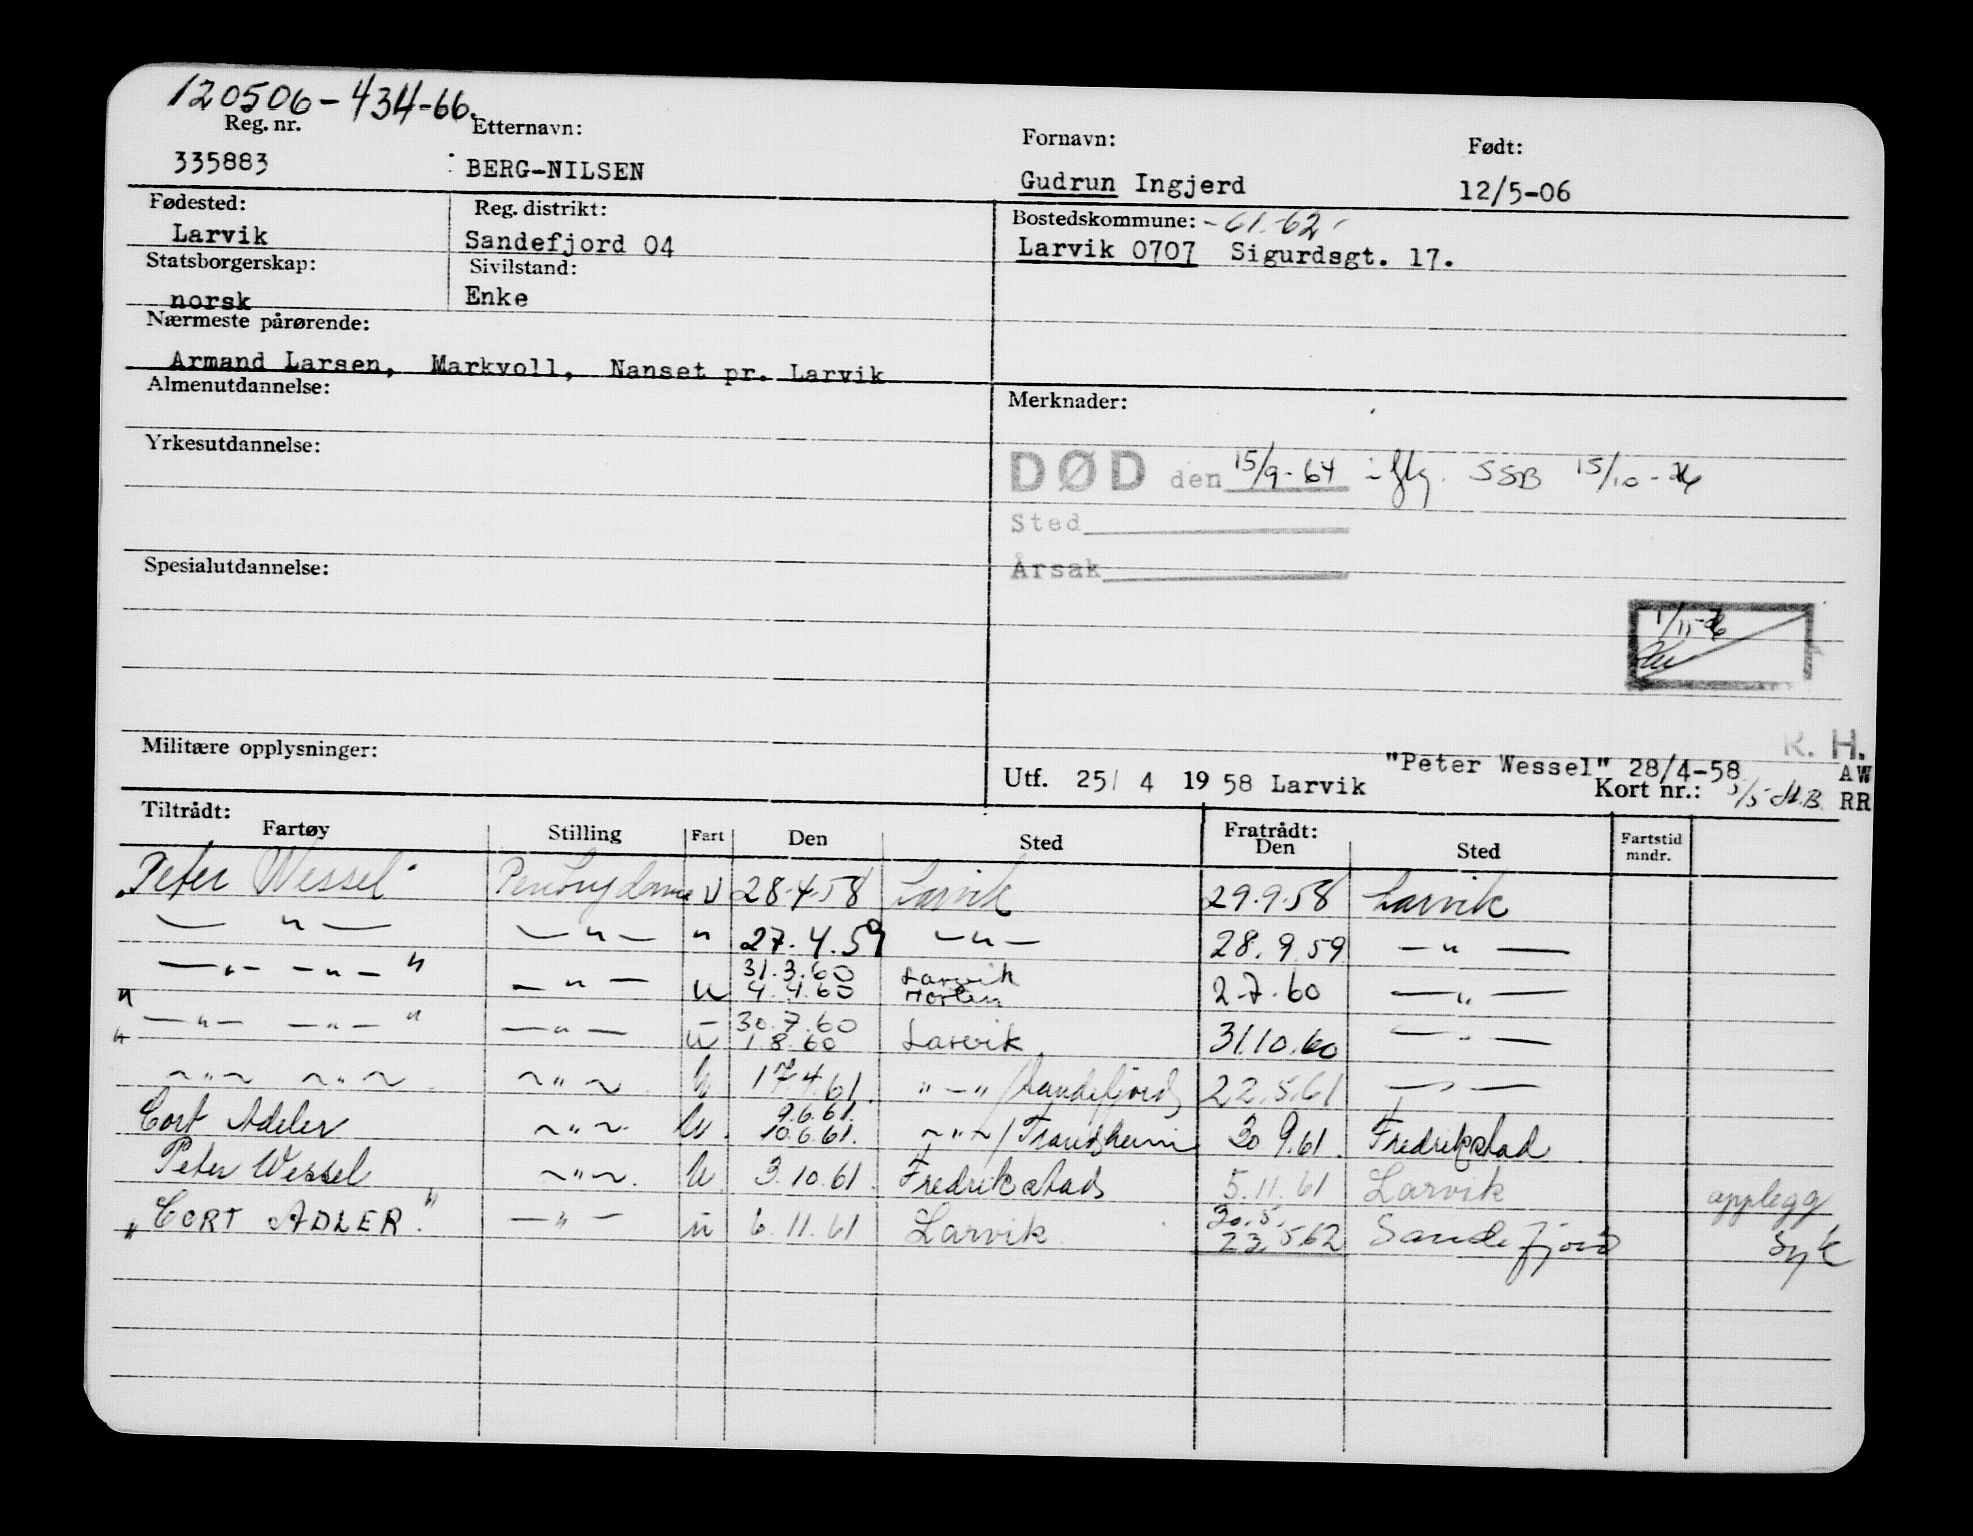 120506-434-66.
Reg. nr. Etternavn: Fornavn: Født:
335883 BERG-NILSEN Gudrun Ingjerd 12/5-06
Fødested: Reg. distrikt: Bostedskommune: -61-62-
Larvik Sandefjord 04 Larvik 0707 Sigurdsgt. 17.
Statsborgerskap: Sivilstand:
norsk Enke
Nærmeste pårørende:
Armand Larsen, Markvoll, Nanset pr. Larvik
Almenutdannelse: Merknader:
Yrkesutdannelse:
DØD den 15/9-64 iflg. SSB 15/10-
Sted
Årsak
Spesialutdannelse:
1/11-
R. H.
Militære opplysninger:
"Peter Wessel" 28/4-58 AW
Utf. 25/ 4 19 58 Larvik Kort nr.: RR
Tiltrådt: Fratrådt:
Fartøy Stilling Fart Den Sted Den Sted Fartstid mndr.
"Peter Wessel" U 28.4.58 Larvik 29.9.58 Larvik
— " — — " — " 27.4.59 — " — 28.9.59 — " —
" — " — — " — " — " — U 31.3.60 4.4.60 Larvik Horten 2.7.60 — " —
" — " — — " — " — " — U 30.7.60 1.8.60 Larvik 31.10.60 — " —
~ " ~ ~ " ~ ~ " ~ U 17.4.61. " — " /Sandefjord 22.5.61 — " —
Cort Adeler ~ " ~ U. 9.6.61. 10.6.61. ~ " ~/Trondheim 30.9.61. Fredrikstad
Peter Wessel ~ " ~. U 3.10.61. Fredrikstad 5.11.61 Larvik opplegg
"CORT ADLER." — " — U 6.11.61 Larvik 20.5. 23.5.62 Sandefjord Syk